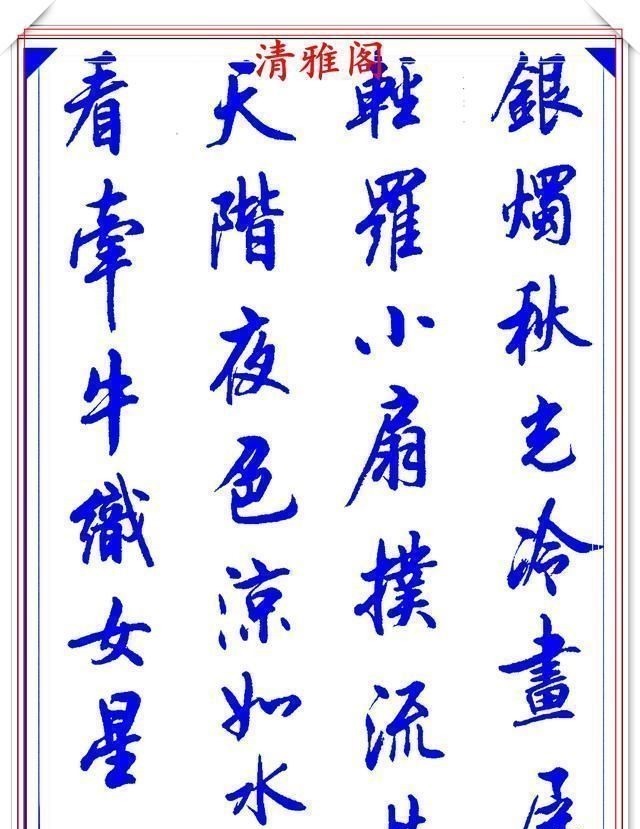 清雅阁
銀燭秋光冷畫
輕羅小扇撲流
天階夜色涼如水
看牽牛織女星